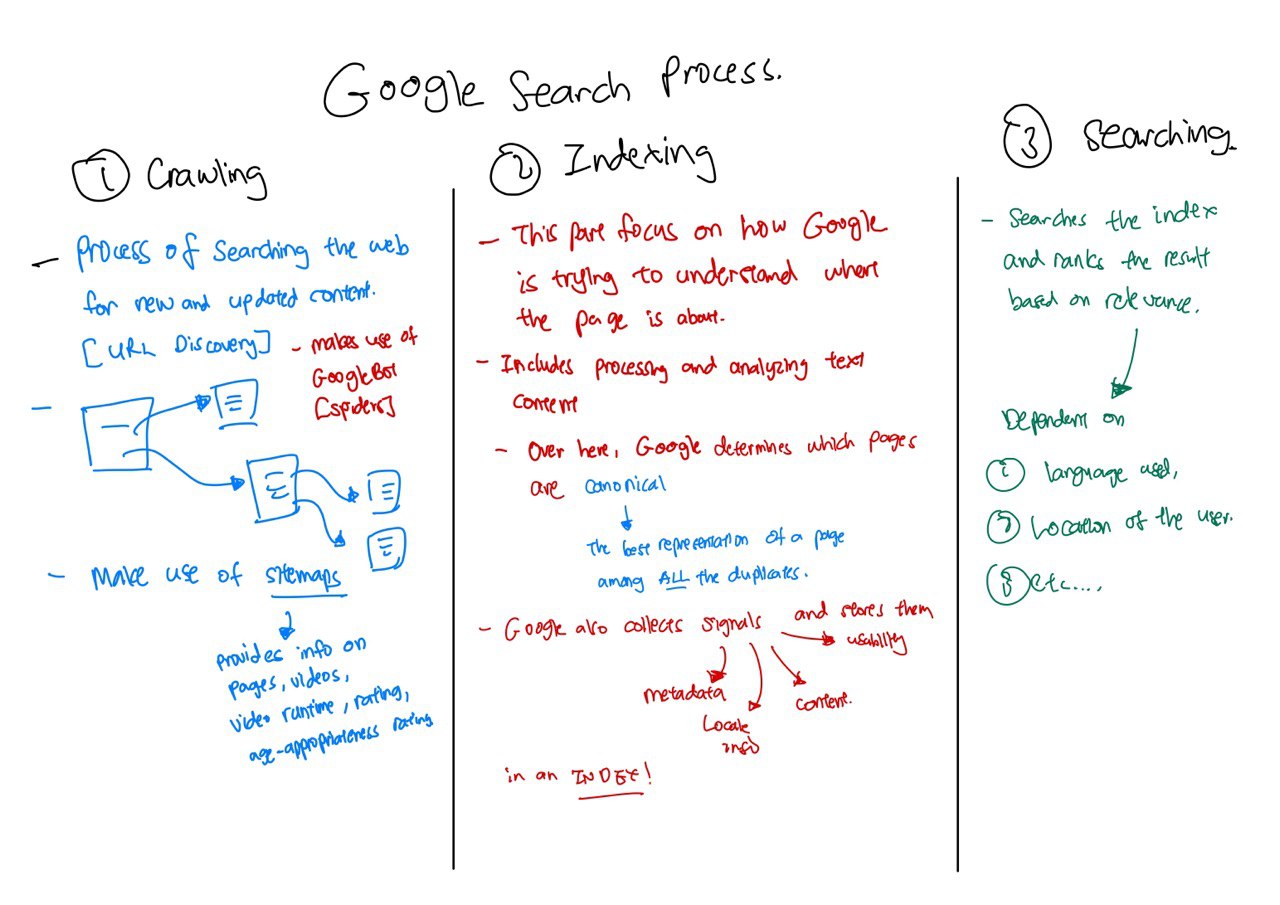 Google Search Process.
① Crawling
- Process of searching the web
for new and updated content.
[URL Discovery]
- makes use of
GoogleBot
[spiders]
-
- Make use of sitemaps
provides info on
pages, videos,
video runtime, rating,
age-appropriateness rating
② Indexing
- This part focus on how Google
is trying to understand where
the page is about.
- Includes processing and analyzing text
content
- Over here, Google determines which pages
are canonical
The best representation of a page
among ALL the duplicates.
- Google also collects signals and stores them
usability
metadata
content.
Locale
info
in an INDEX!
③ Searching.
- Searches the index
and ranks the result
based on relevance.
Dependent on
① language used,
② Location of the user.
③ etc....